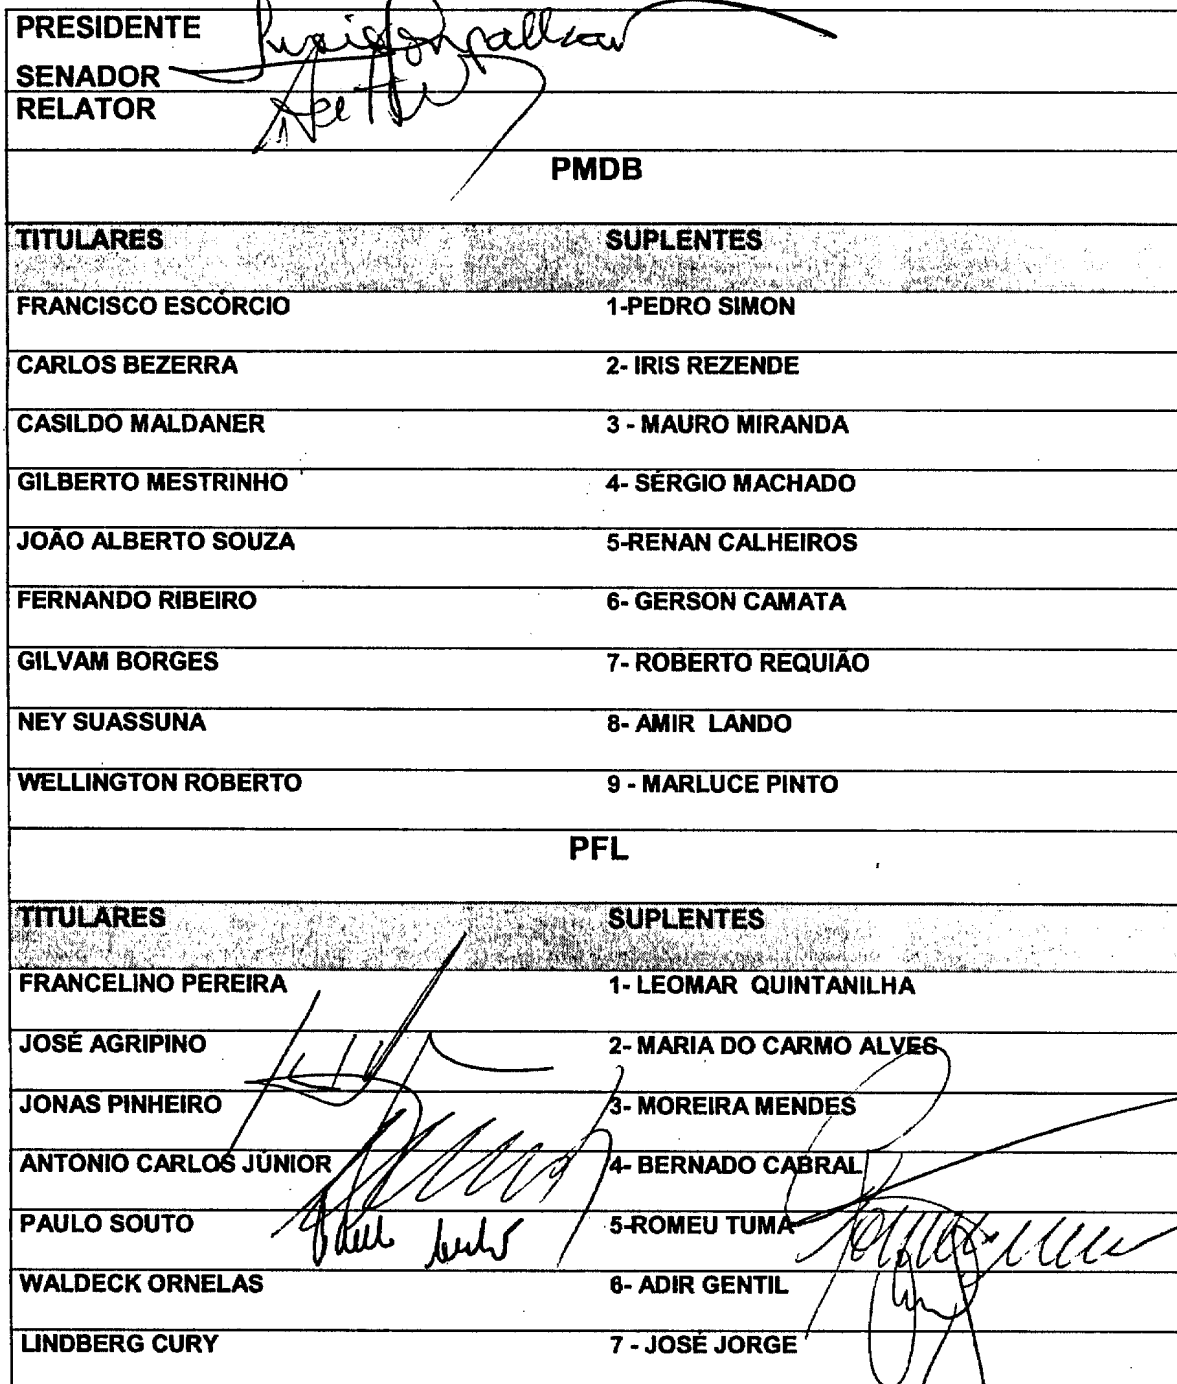 PRESIDENTE
SENADOR
RELATOR
PMDB
TITULARES SUPLENTES
FRANCISCO ESCÓRCIO 1-PEDRO SIMON
CARLOS BEZERRA 2- IRIS REZENDE
CASILDO MALDANER 3 - MAURO MIRANDA
GILBERTO MESTRINHO 4- SÉRGIO MACHADO
JOÃO ALBERTO SOUZA 5-RENAN CALHEIROS
FERNANDO RIBEIRO 6- GERSON CAMATA
GILVAM BORGES 7- ROBERTO REQUIÃO
NEY SUASSUNA 8- AMIR LANDO
WELLINGTON ROBERTO 9 - MARLUCE PINTO
PFL
TITULARES SUPLENTES
FRANCELINO PEREIRA 1- LEOMAR QUINTANILHA
JOSÉ AGRIPINO 2- MARIA DO CARMO ALVES
JONAS PINHEIRO 3- MOREIRA MENDES
ANTONIO CARLOS JÚNIOR 4- BERNADO CABRAL
PAULO SOUTO 5-ROMEU TUMA
WALDECK ORNELAS 6- ADIR GENTIL
LINDBERG CURY 7 - JOSÉ JORGE